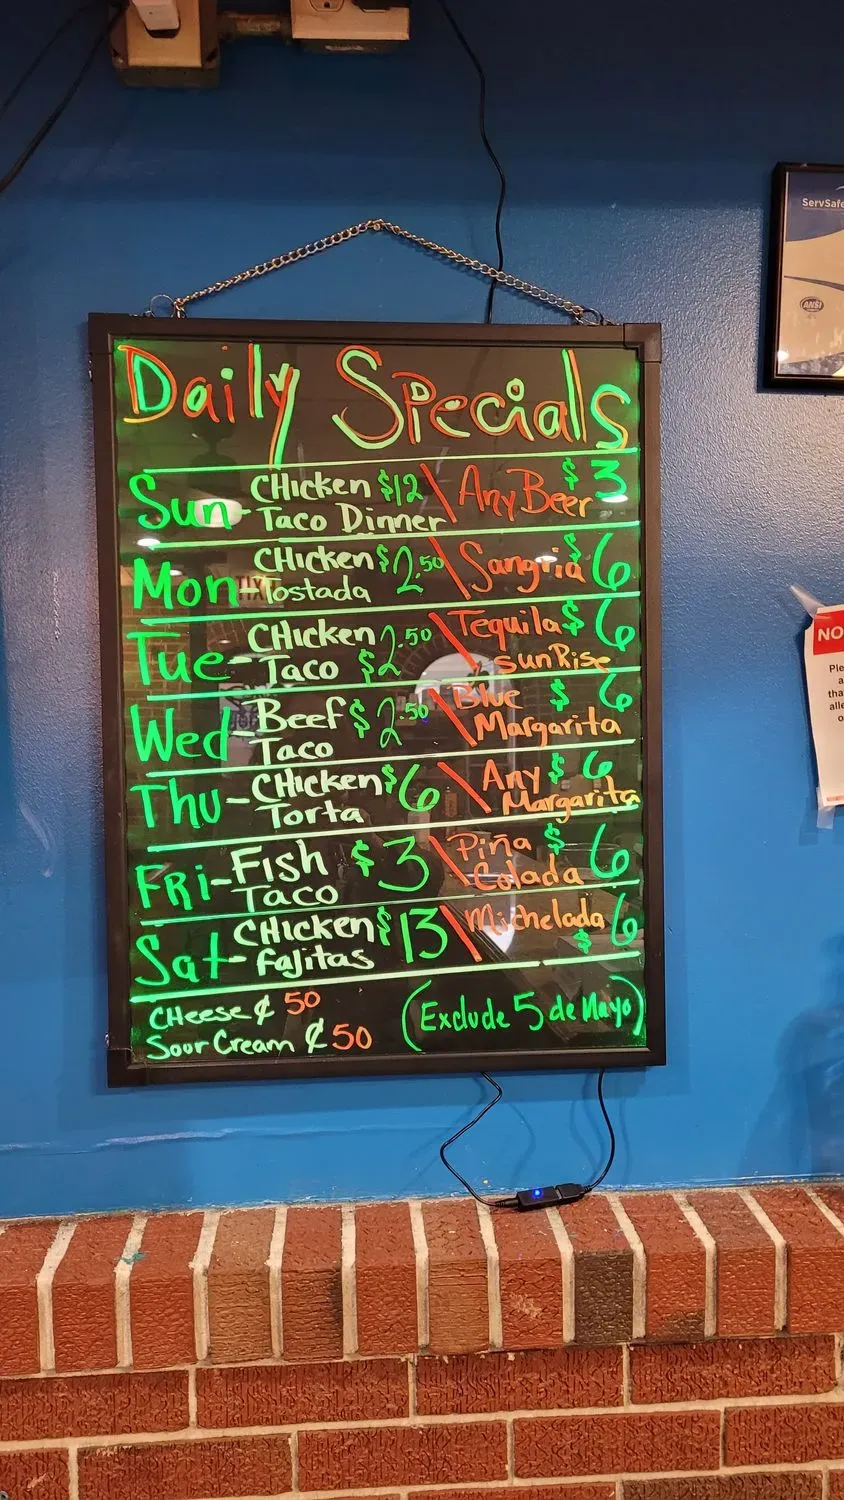 Daily Specials
Sun- CHicken $12 \ Any Beer $3
Taco Dinner
Mon- CHicken $2.50 \ Sangria $6
Tostada
Tue- CHicken $2.50 \ Tequila $6
Taco sunRise
Wed- Beef $2.50 \ Blue $6
Taco Margarita
Thu- CHicken $6 \ Any $6
Torta Margarita
FRi- Fish $3 \ Piña $6
Taco Colada
Sat- CHicken $13 \ Michelada $6
fajitas
CHeese ¢ 50
Sour Cream ¢ 50
(Exclude 5 de Mayo)
ServSafe
ANSI
NO
Ple
a
tha
alle
o